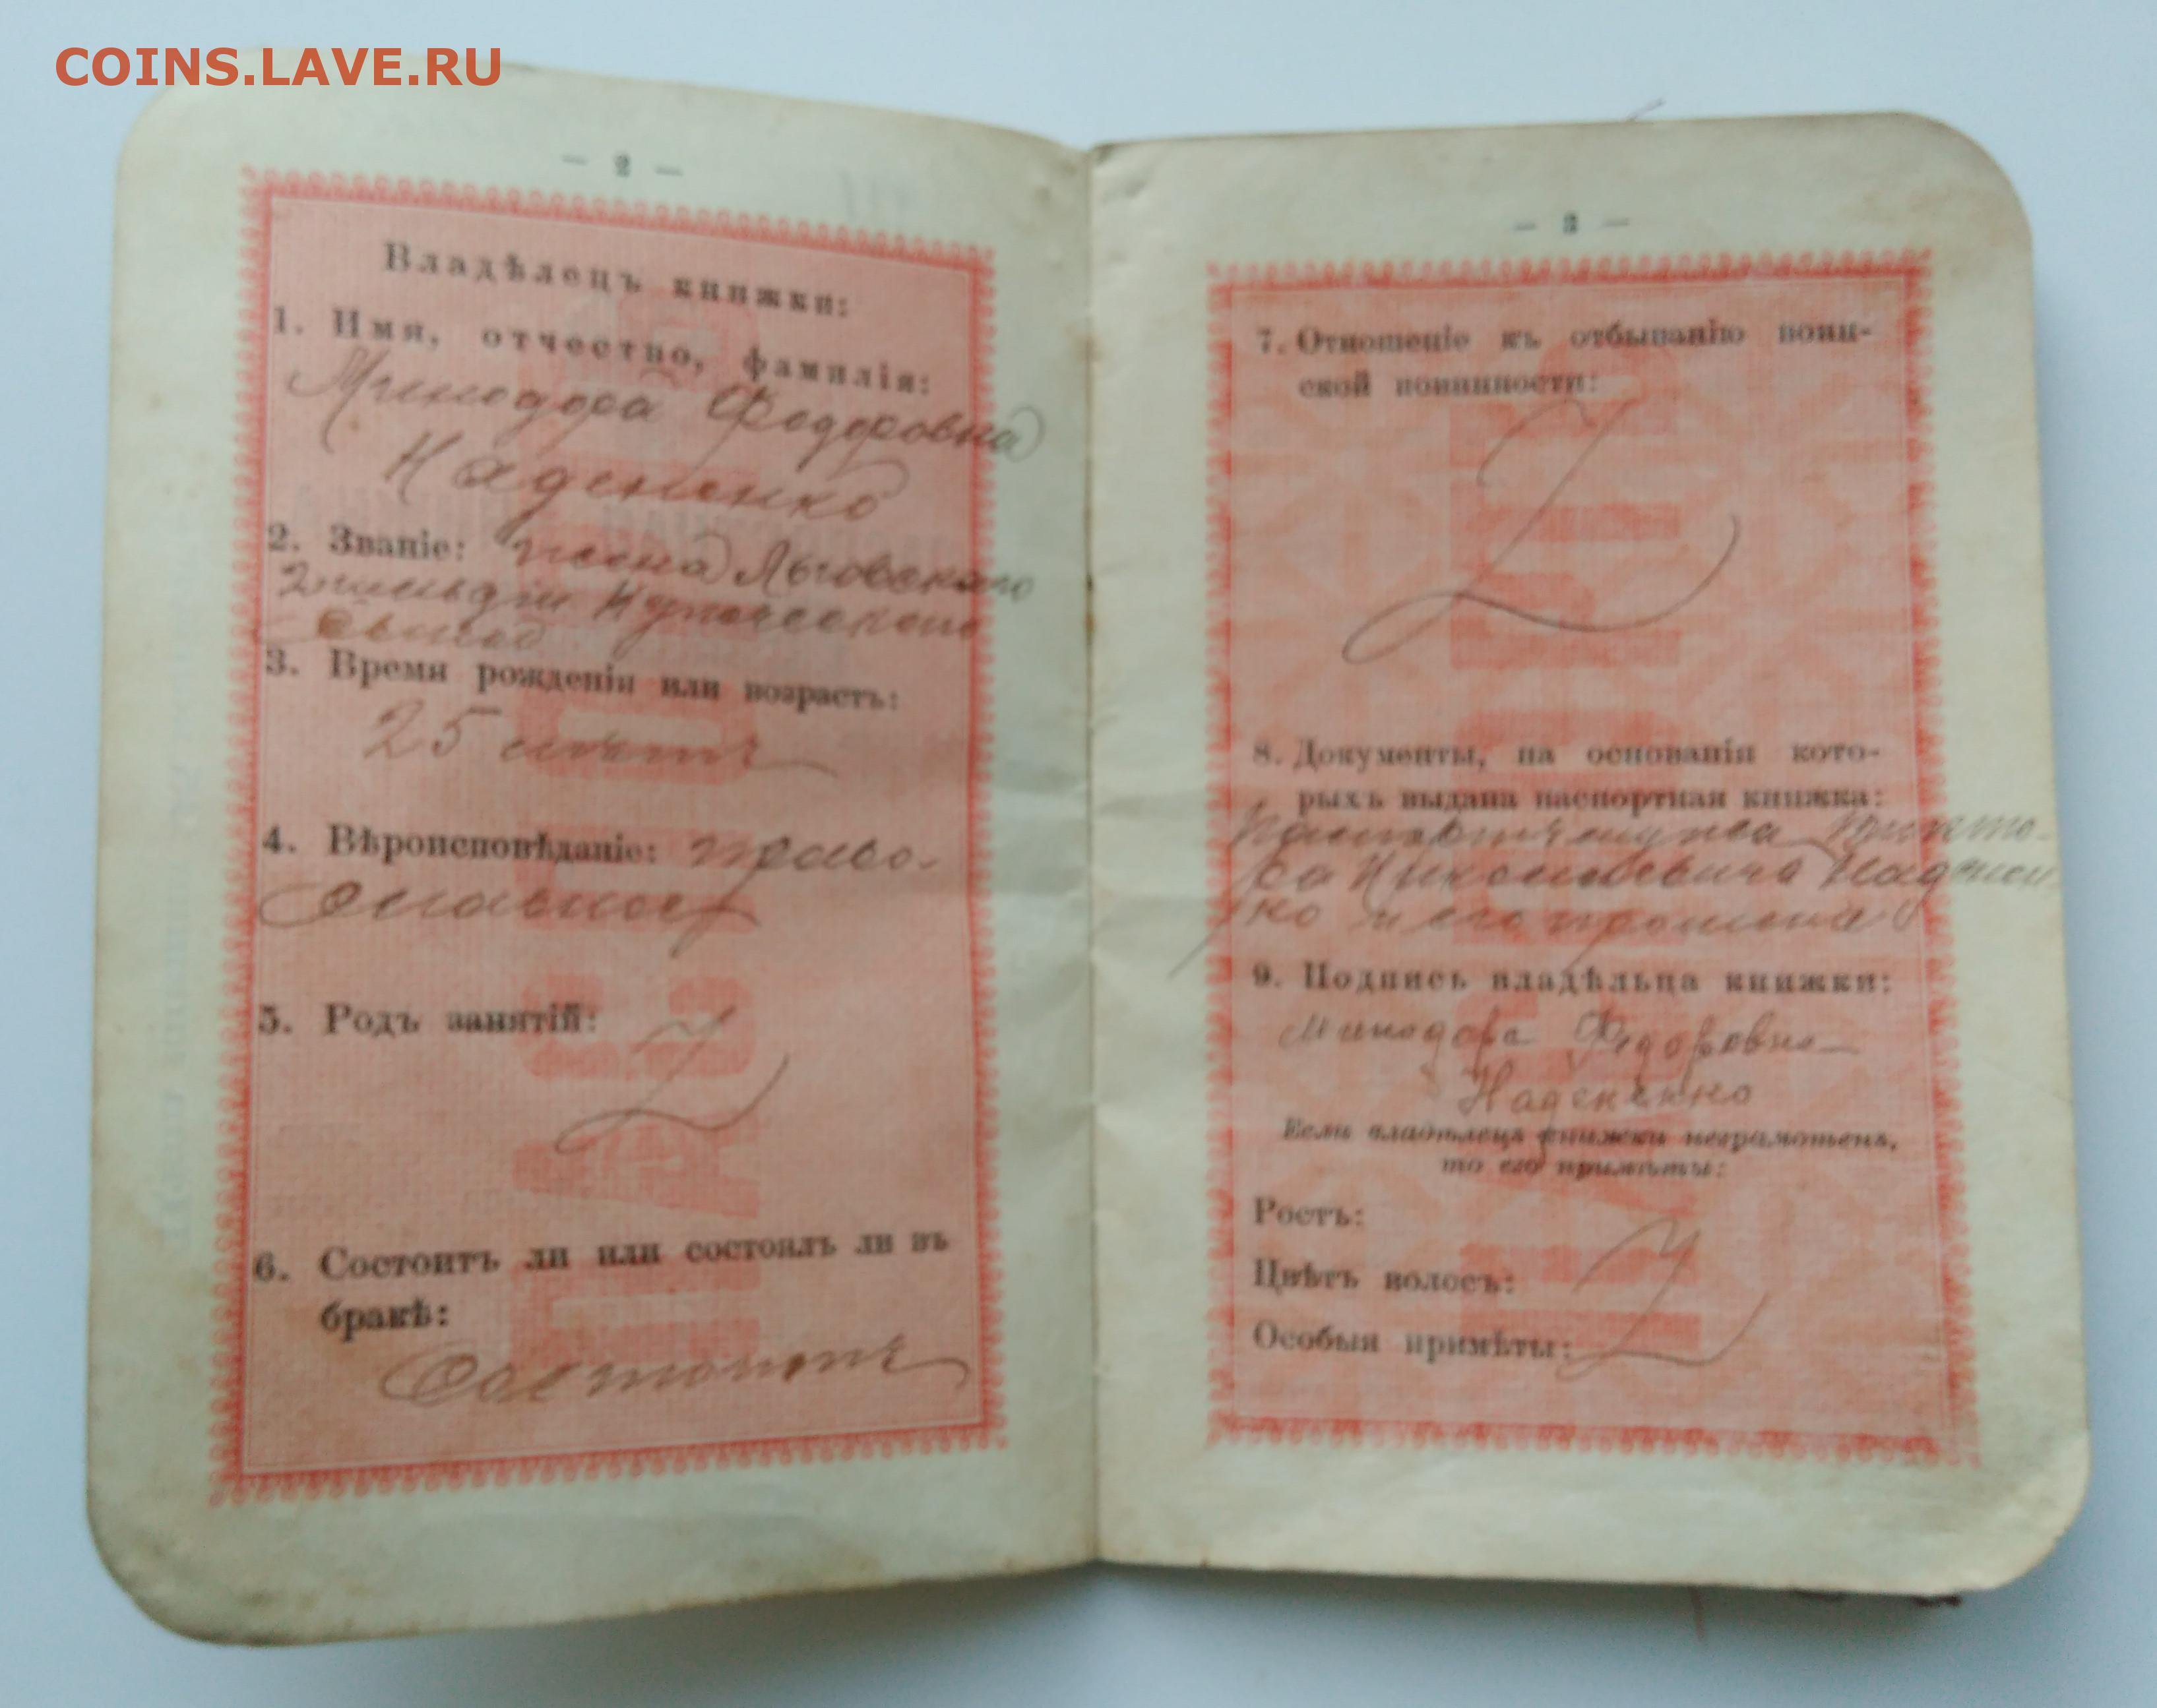 COINS.LAVE.RU
— 2 —
Владѣлецъ книжки:
1. Имя, отчество, фамилія:
Минодора Федоровна
Надененко
2. Званіе: жена Льговскаго
2 гильдіи Купеческаго
сына
3. Время рожденія или возрастъ:
25 лѣтъ
4. Вѣроисповѣданіе: право-
славное
5. Родъ занятій:
6. Состоитъ ли или состоялъ ли въ
бракѣ:
Состоитъ
— 3 —
7. Отношеніе къ отбыванію воин-
ской повинности:
8. Документы, на основаніи кото-
рыхъ выдана паспортная книжка:
Паспортъ мужа
Николаевича Наденен
ко и его
9. Подпись владѣльца книжки:
Минодора Федоровна
Наденѣнко
Если владѣлецъ книжки неграмотенъ,
то его примѣты:
Ростъ:
Цвѣтъ волосъ:
Особыя примѣты: